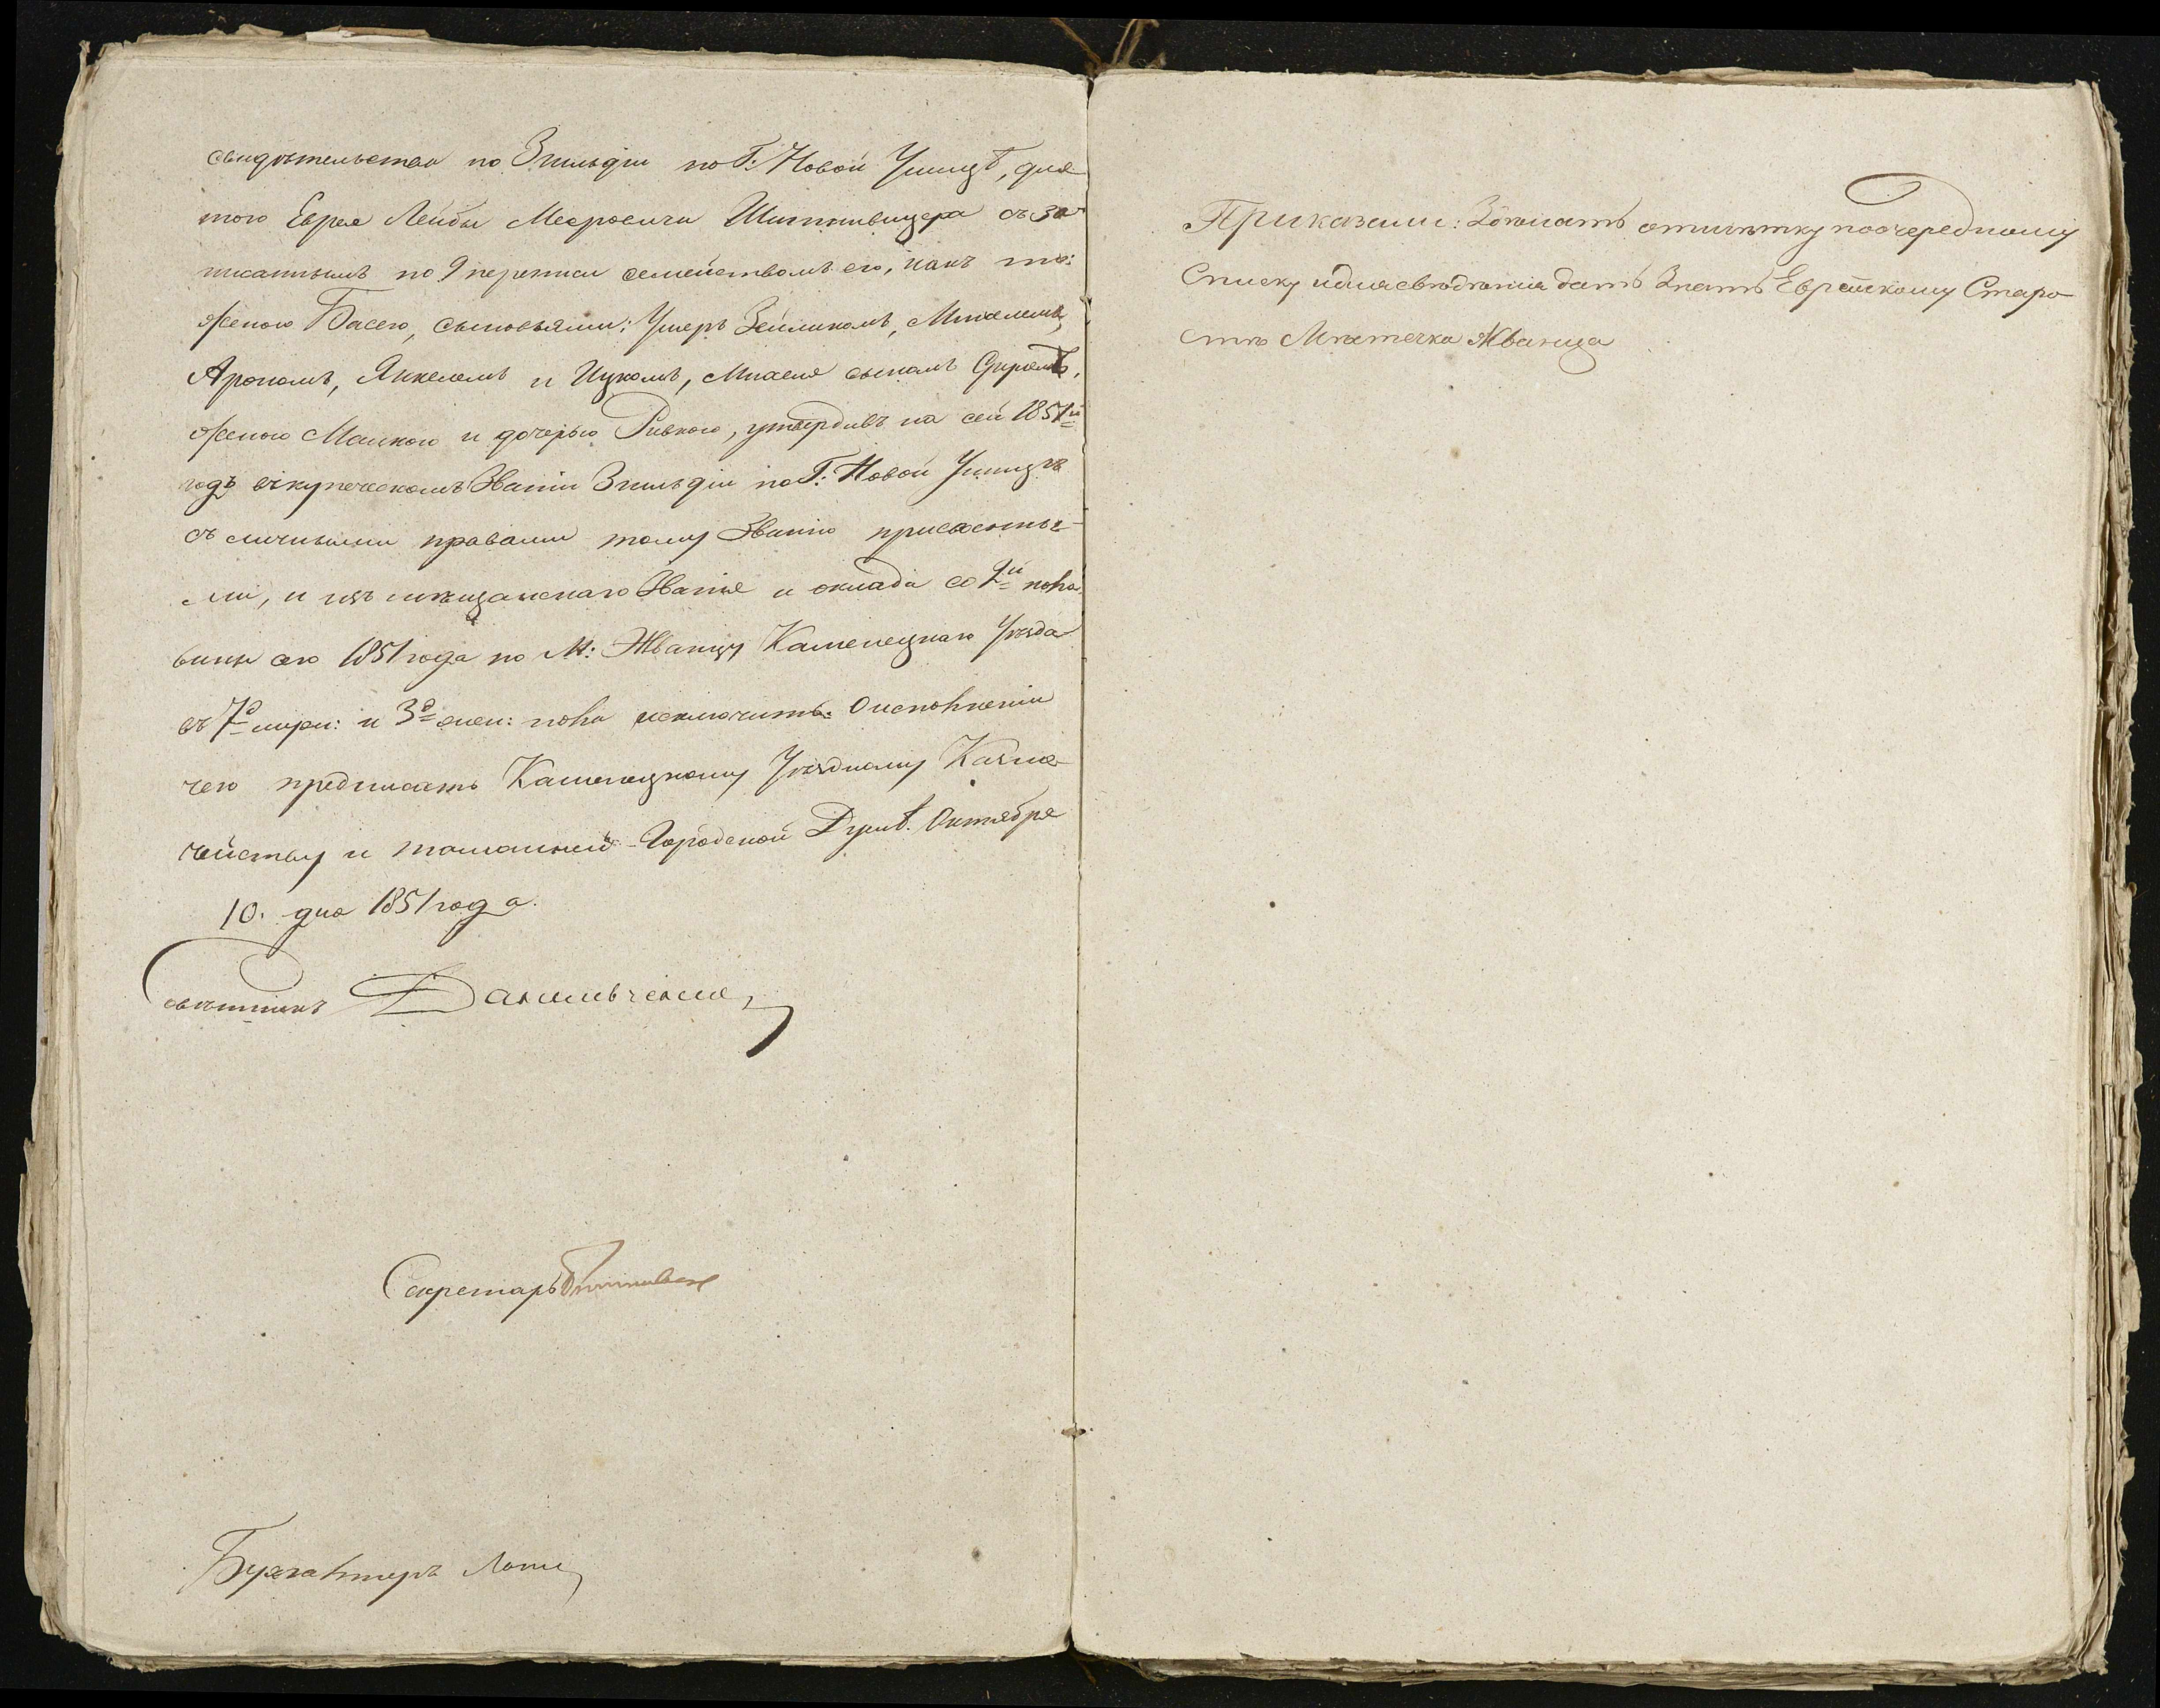 свидѣтельства по 3 гильдіи по Г: Новой Ушицѣ, для
того Еврея Лейбы Мееровича съ за-
писаннымъ по 9 переписи семействомъ его, какъ то:
женою Басею, сыновьями: Умеръ Зейликомъ, Михелемъ,
Арономъ, Янкелемъ и Ицкомъ, Михеля сыномъ
женою Маикою и дочерью Ривкою, утвердивъ на сей 1851й
годъ въ купеческомъ Званіи 3 гильдіи по Г: Новой Ушицѣ
съ личными правами тому Званію присвоенны-
ми, и изъ мѣщанскаго Званія и оклада со 2й поло-
вины сего 1851 года по М: Жванцу Каменецкаго Уѣзда
въ 7й и 3й пола исключить. О исполненіи
чего предписать Каменецкому Уѣздному Казна-
чейству и тамошней Городской Думѣ. Октября
10. дня 1851 года.
Совѣтникъ Данильченко
Секретарь
Бухгалтеръ
Приказали: Здѣлать отмѣтку по очередному
Списку и для свѣдѣнія дать Знать Еврейскому Старо-
стѣ Мѣстечка Жванца